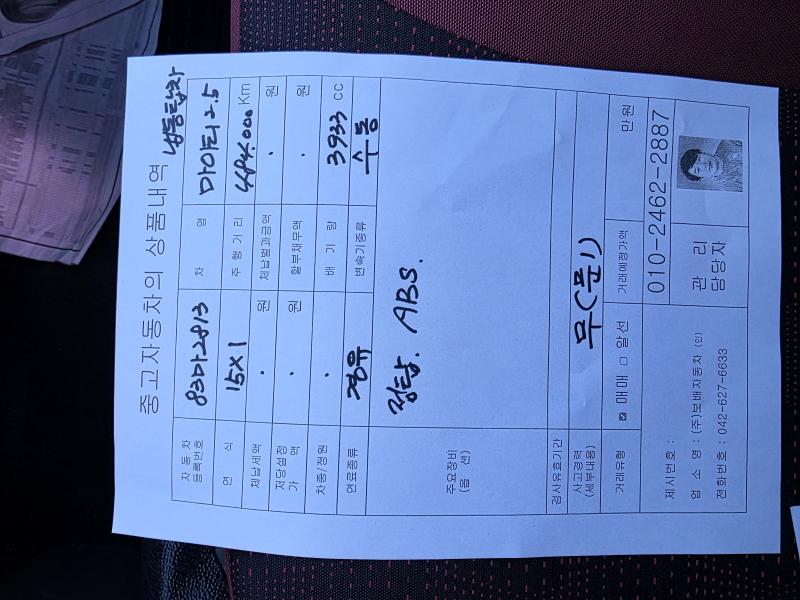 냉동탑차
중고자동차의 상품내역
자동차등록번호 83마2813 차 명 마이티2.5
연 식 15X1 주행거리 484,000 Km
체납세액 · 원 체납벌과금액 · 원
저당설정가액 · 원 할부채무액 · 원
차종/정원 · 배 기 량 3933 cc
연료종류 경유 변속기종류 수동
주요장비(옵 션) 정탑. ABS.
검사유효기간
사고경력(세부내용) 무(문1)
거래유형 ☑ 매매 □ 알선 거래예정가액 만원
제시번호 : 010-2462-2887
업 소 명 : (주)보배자동차 (인) 관 리
전화번호 : 042-627-6633 담당자